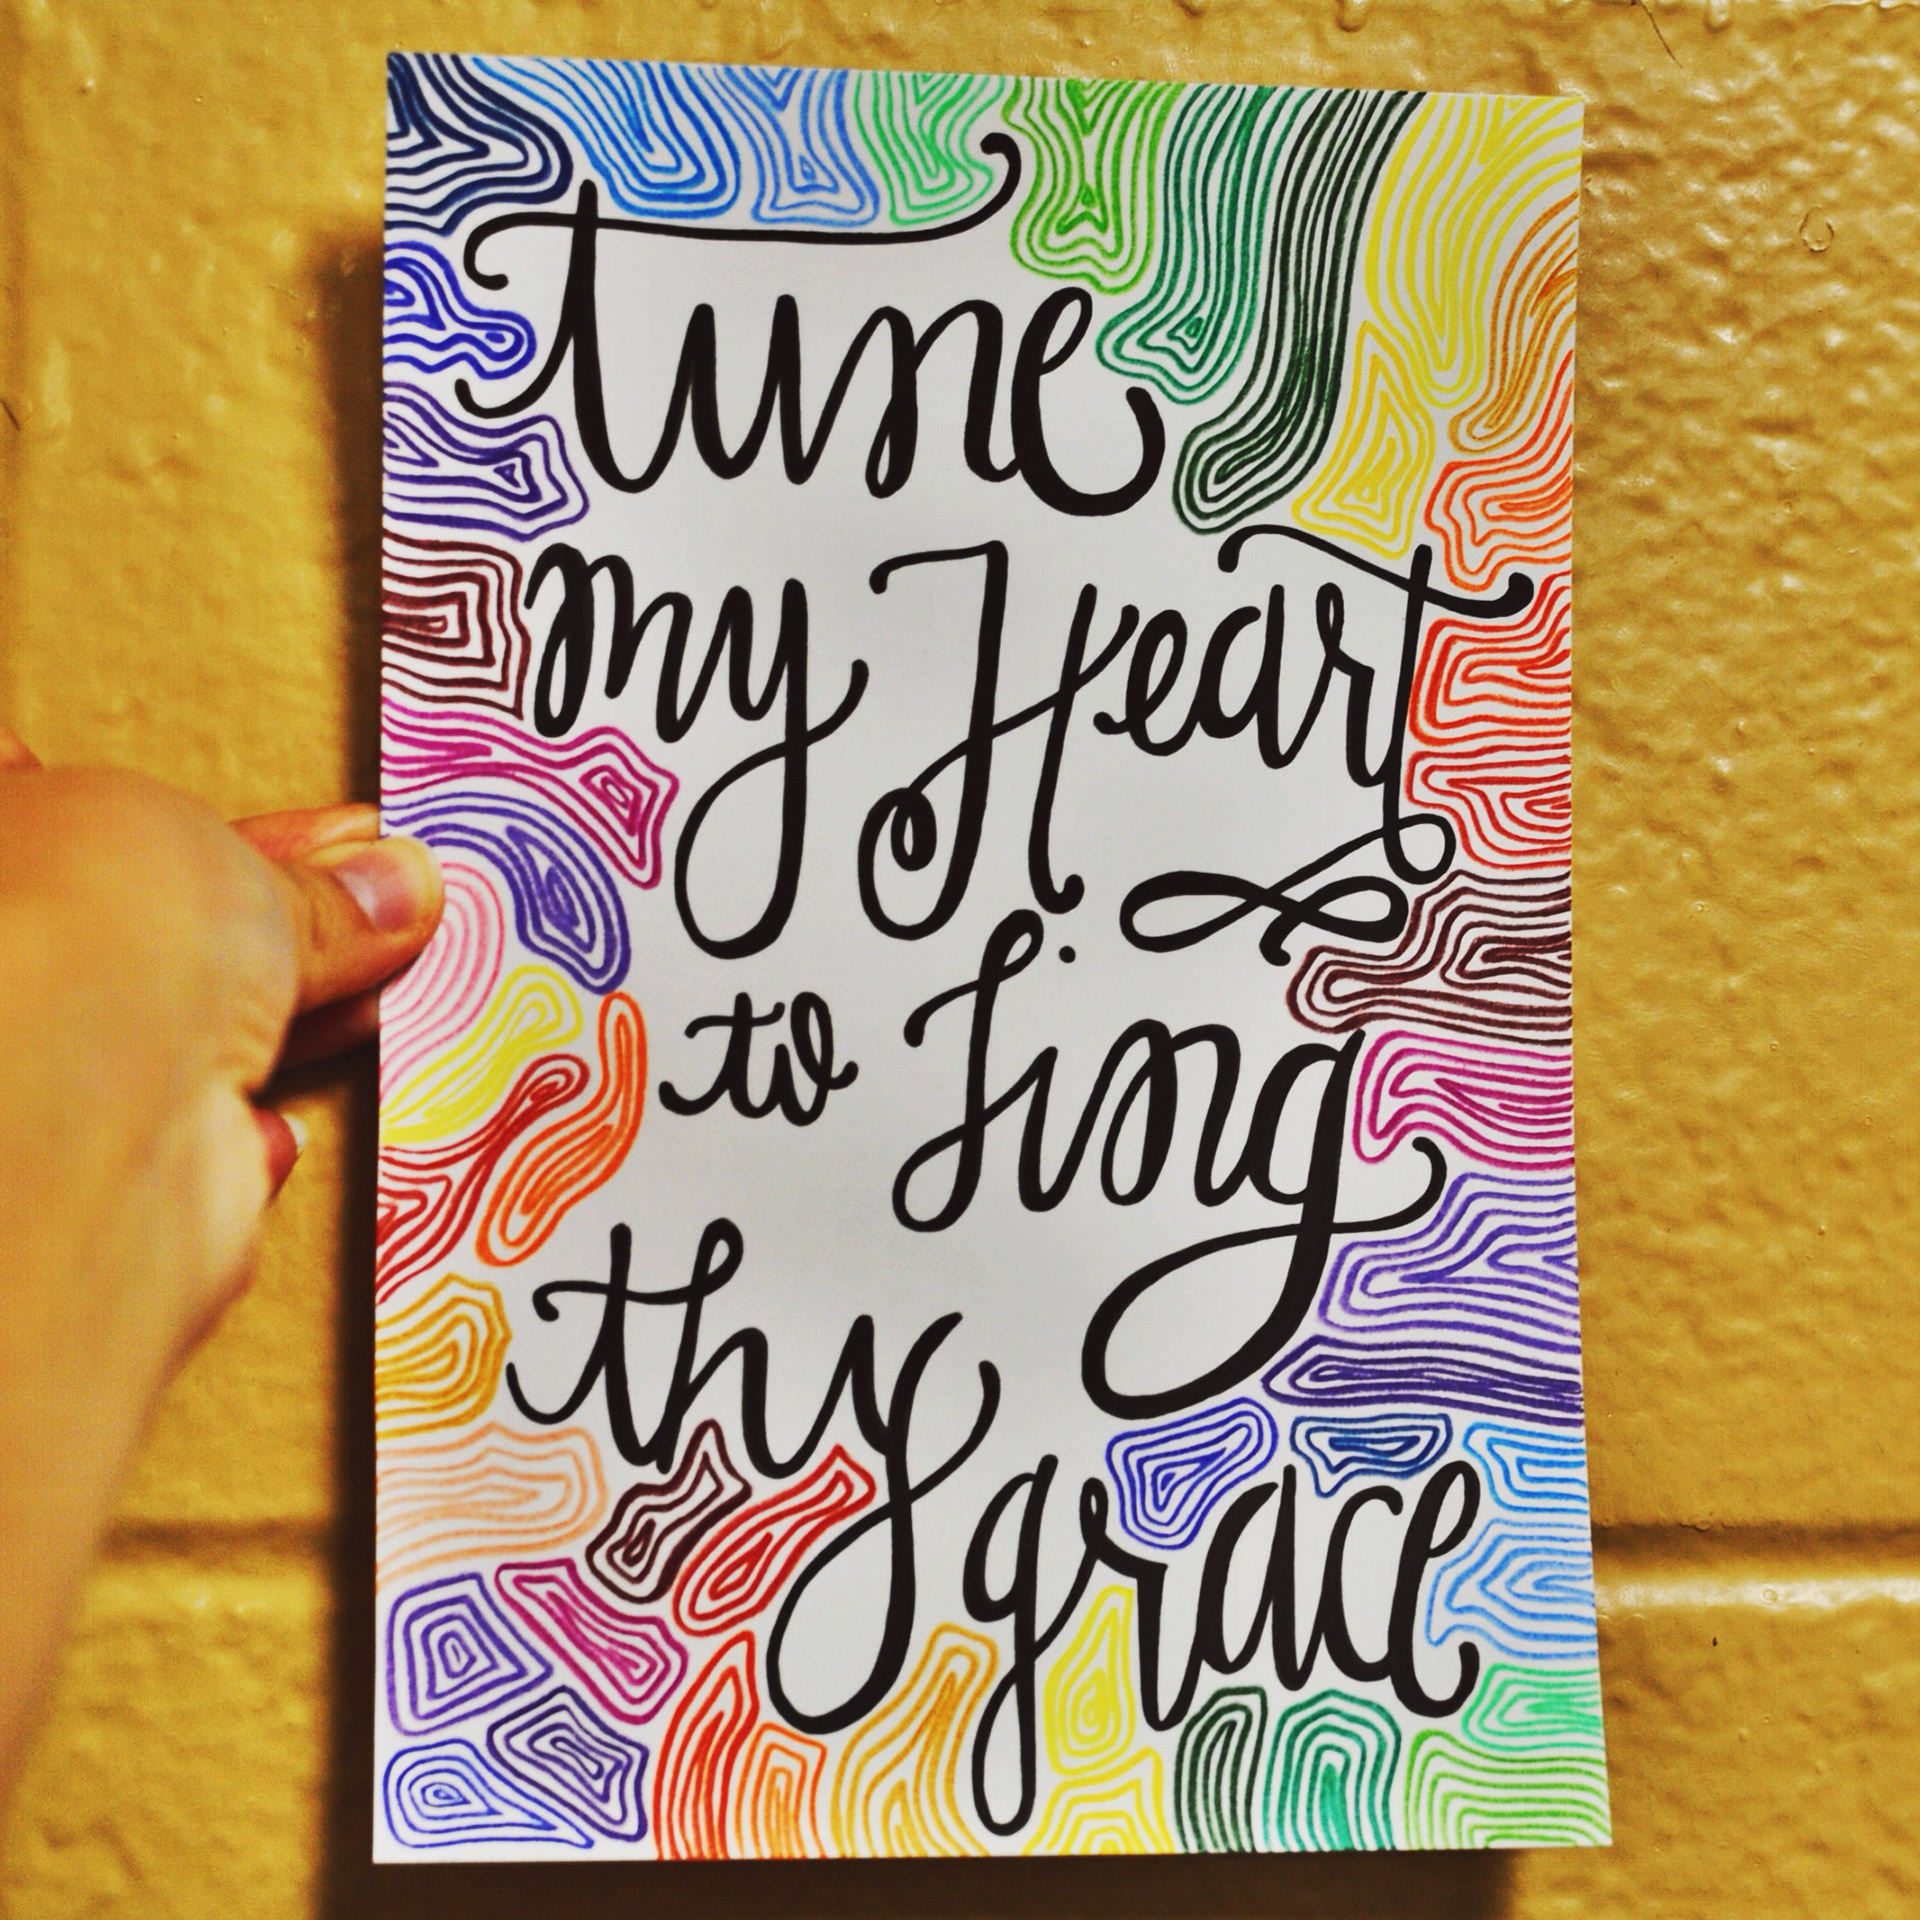 tune
my Heart
to Sing
thy
grace